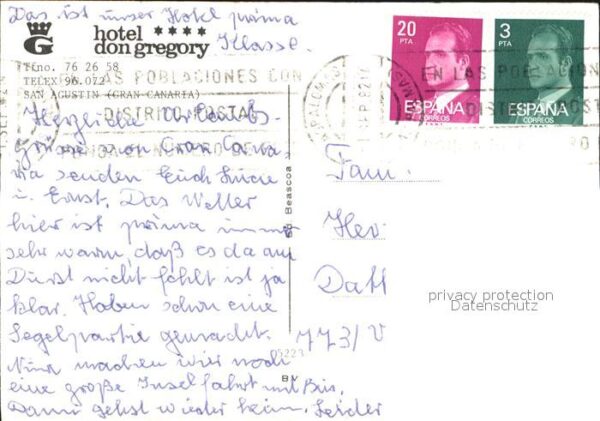 Das ist unser Hotel prima
Klasse.
hotel ★★★★
don gregory
G
Tfno. 76 26 58
TELEX 96.072
SAN AGUSTIN (GRAN CANARIA)
20
PTA
ESPAÑA
CORREOS
3
PTA
ESPAÑA
CORREOS
LAS POBLACIONES CON
DISTRITO POSTAL
EN LAS POB
DIST
Herzliche Urlaubs-
grüsse von Gran Cana
ria senden Euch
u. Ernst. Das Wetter
hier ist prima immer
sehr warm, daß es da am
Durst nicht fehlt ist ja
klar. Haben schon eine
Segelpartie gemacht.
Nun machen wir noch
eine große Inselfahrt mit Bus.
Dann gehst wieder heim. Leider
Ed. Beascoa
05223
B.V.
Fam.
Her
Datt
773/V
privacy protection
Datenschutz